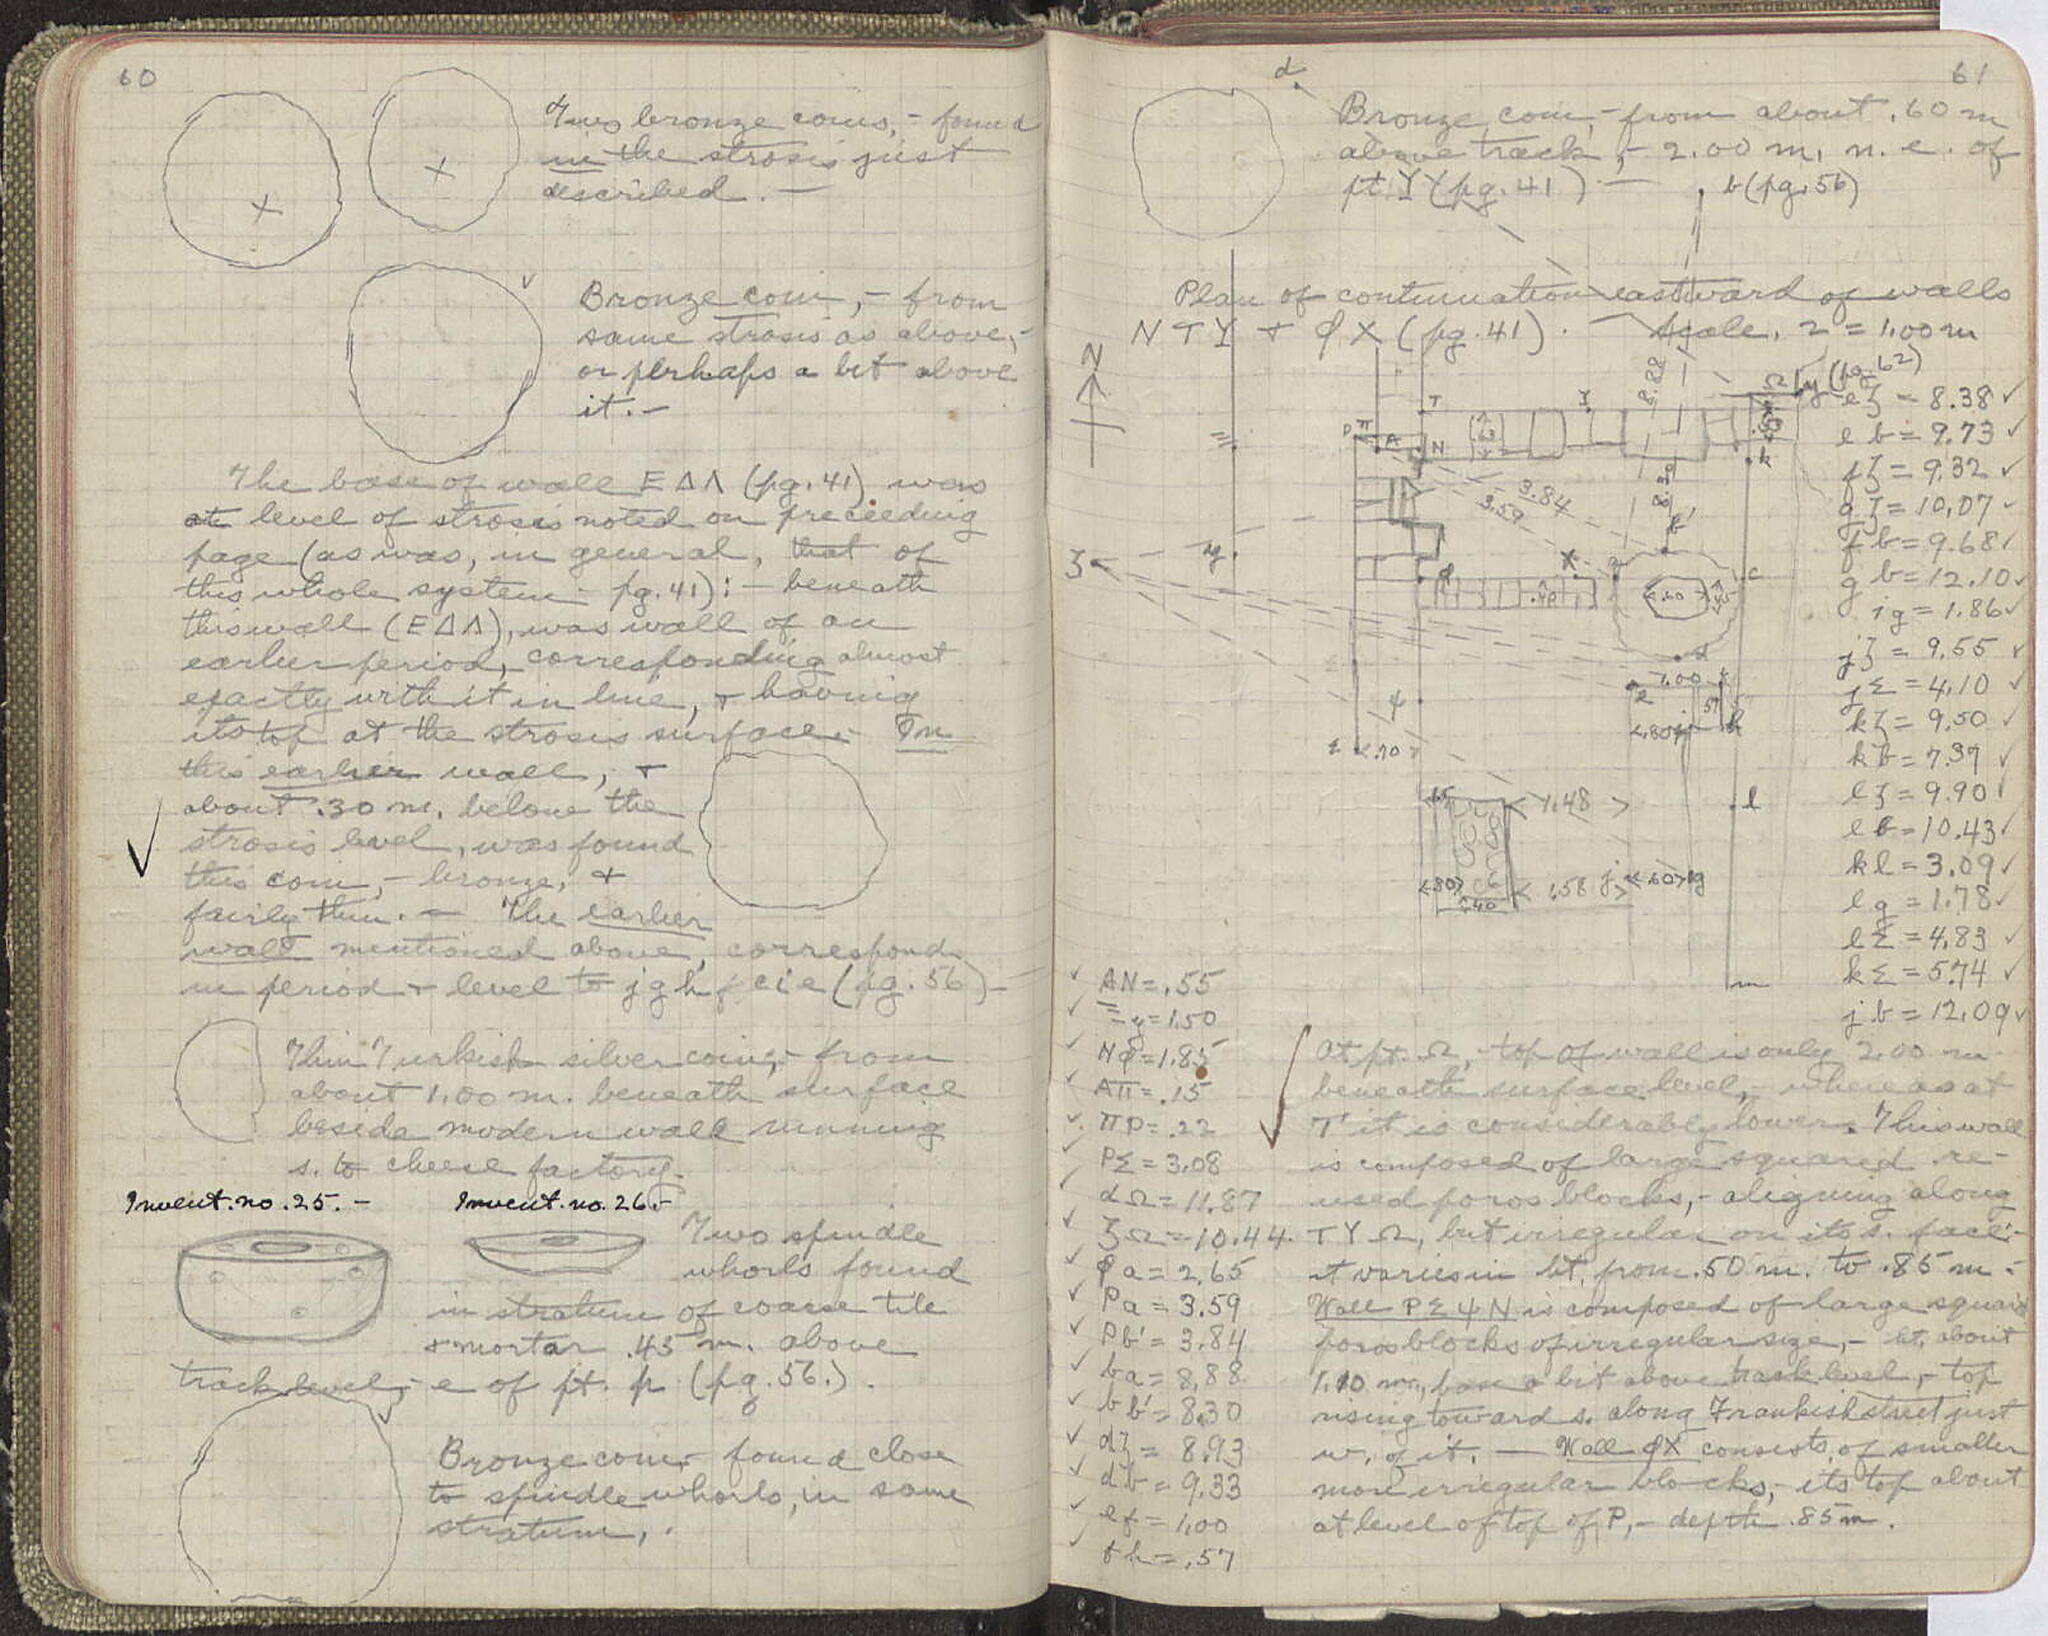 60
Two bronze coins, - found
in the strosis just
described. -
Bronze coin, - from
same strosis as above, -
or perhaps a bit above
it. -
The base of wall ΕΔΛ (pg. 41) was
at level of strosis noted on preceeding
page (as was, in general, that of
this whole system - pg. 41): - beneath
this wall (ΕΔΛ), was wall of an
earlier period, corresponding almost
exactly with it in line, + having
its top at the strosis surface. - In
this earlier wall, +
about .30 m. below the
strosis level, was found
this coin, - bronze, +
fairly thin. - The earlier
wall mentioned above, correspond
in period + level to j g h f c i e (pg. 56) -
Thin Turkish silver coin, - from
about 1.00 m. beneath surface
beside modern wall running
s. to cheese factory.
Invent. no. 25. - Invent. no. 26. -
Two spindle
whorls found
in stratum of coarse tile
+ mortar .45 m. above
track level, - e of pt. p (pg. 56.).
Bronze coin - found close
to spindle whorls, in same
stratum, .
61
d
Bronze coin, - from about .60 m
above track, - 2.00 m. n. e. of
pt Y (pg. 41) - b (pg. 56)
Plan of continuation eastward of walls
N T Y + φ X (pg. 41). - Scale. 2 = 1.00 m
N
Ω y (pg. 62)
8.88
8.30
3.84
3.59
1.00
.57
.80
.70
1.48
1.58
.60
.80
.40
eζ = 8.38
e b = 9.73
fζ = 9.32
gζ = 10.07
f b = 9.68
g b = 12.10
i g = 1.86
jζ = 9.55
jΣ = 4.10
kζ = 9.50
k b = 7.37
lζ = 9.90
l b = 10.43
k l = 3.09
l g = 1.78
lΣ = 4.83
kΣ = 5.74
j b = 12.09
AN = .55
Ξy = 1.50
Nφ = 1.85
AΠ = .15
ΠP = .22
PΣ = 3.08
dΩ = 11.87
ζΩ = 10.44
φa = 2.65
Pa = 3.59
Pb' = 3.84
ba = 8.88
bb' = 8.30
dζ = 8.93
db = 9.33
ef = 1.00
fh = .57
At pt. Ω, - top of wall is only 2.00 m
beneath surface level, - where as at
T it is considerably lower. This wall
is composed of large squared re-
used poros blocks, - aligning along
T Y Ω, but irregular on its s. face: -
it varies in ht. from .50 m. to .85 m. -
Wall P Σ ψ N is composed of large squared
poros blocks of irregular size, - ht. about
1.10 m., base a bit above track level, - top
rising toward s. along Frankish street just
w. of it. - Wall φX consists of smaller
more irregular blocks, - its top about
at level of top of P, - depth .85 m.